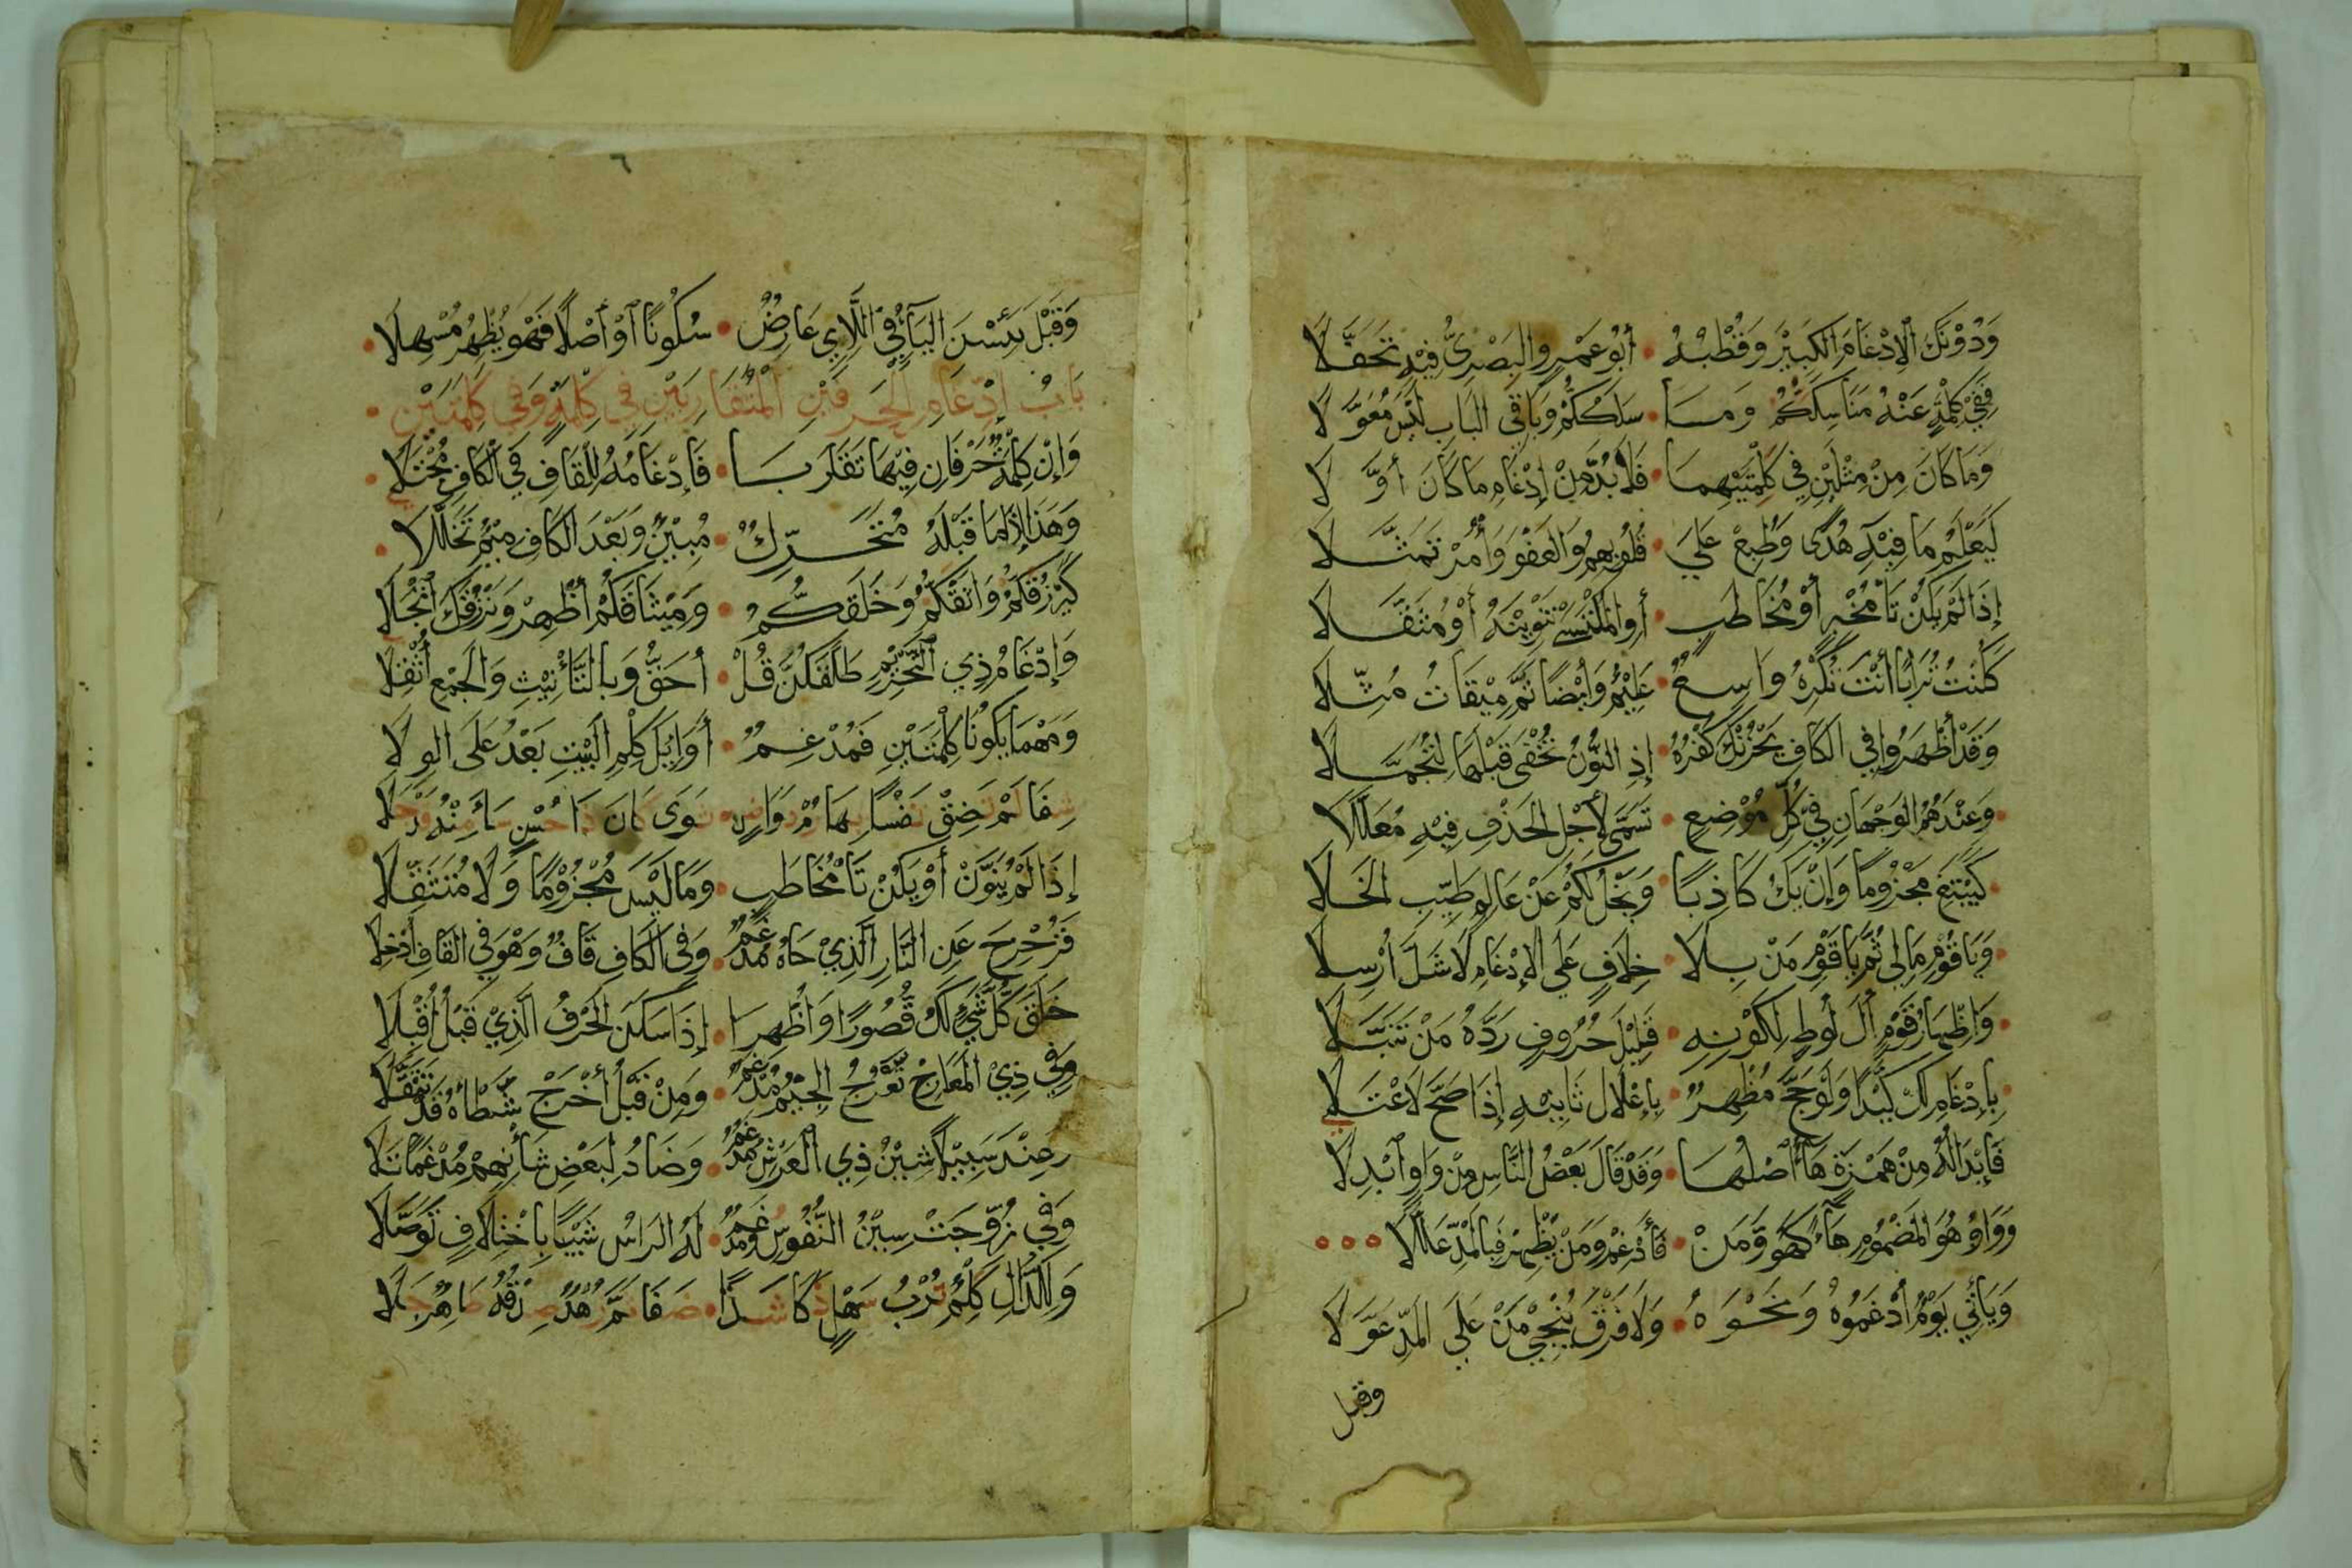 وَدُوْنَكَ اَلِادْغَامَ الكَبِيْرَ وَقُطْبُهُ • أَبُو عَمْرٍو البَصْرِيُّ فِيْهِ تَحَفَّلَا
فَفِيْ كِلْمَةٍ عَنْهُ مَنَاسِكَكُمْ وَمَا • سَلَكَكُمْ وَبَاقِي البَابِ لَيْسَ مُعَوَّلَا
وَمَا كَانَ مِنْ مِثْلَيْنِ فِي كِلْمَتَيْهِمَا • فَلَا بُدَّ مِنْ إِدْغَامِ مَا كَانَ أَوَّلَا
كَيَعْلَمُ مَا فِيْهِ هُدًى وَطُبِعْ عَلَى • قُلُوْبِهِمُ وَالعَفْوَ وَأْمُرْ تَمَثَّلَا
إِذَا لَمْ يَكُنْ تَا مُخْبِرٍ أَوْ مُخَاطَبٍ • أَوِ المُكْتَسِيْ تَنْوِيْنَهُ أَوْ مُثَقَّلَا
كَكُنْتُ تُرَابًا أَنْتَ تُكْرِهُ وَاسِعٌ • عَلِيْمٌ وَأَيْضًا تَمَّ مِيْقَاتُ مُثِّلَا
وَقَدْ أَظْهَرُوا فِي الكَافِ يَحْزُنْكَ كُفْرُهُ • إِذِ النُّوْنُ تُخْفَى قَبْلَهَا لِتُجَمَّلَا
• وَعِنْدَهُمُ الوَجْهَانِ فِيْ كُلِّ مَوْضِعٍ • تَسَمَّى لِأَجْلِ الحَذْفِ فِيْهِ مُعَلَّلَا
• كَيَبْتَغِ مَجْزُومًا وَإِنْ يَكُ كَاذِبًا • وَيَخْلُ لَكُمْ عَنْ عَالِمٍ طَيِّبِ الخَلَا
• وَيَا قَوْمِ مَا لِي ثُمَّ يَا قَوْمِ مَنْ بِلَا • خِلَافٍ عَلَى الإِدْغَامِ لَا شَكَّ أُرْسِلَا
• وَإِظْهَارُ قَوْمٍ أَلَ لُوْطٍ لِكَوْنِهِ • قَلِيْلَ حُرُوفٍ رَدَّهُ مَنْ تَنَبَّلَا
• بِإِدْغَامِ لَكْ كَيْدًا وَلَوْ حَجَّ مُظْهِرٌ • بِإِعْلَالِ ثَانِيْهِ إِذَا صَحَّ لَاعْتَلَا
فَإِبْدَالُهُ مِنْ هَمْزَةٍ هَاءٌ أَصْلُهَا • وَقَدْ قَالَ بَعْضُ النَّاسِ مِنْ وَاوٍ ابْدِلَا
وَوَاوُ هُوَ المَضْمُومِ هَاءً كَهُوْ وَّمَنْ • فَأَدْغِمْ وَمَنْ يُظْهِرْ فَبِالمَدِّ عَلَّلَا •••
وَيَأْتِيَ يَوْمٌ أَدْغَمُوهُ وَنَحْوَهُ • وَلَا فَرْقَ يُنْجِيْ مَنْ عَلَى المَدِّ عَوَّلَا
وقبل
٦
وَقَبْلَ يَئِسْنَ اليَاءُ فِي اللَّائِي عَارِضٌ • سُكُوْنًا أَوْ أَصْلًا فَهْوَ يُظْهِرُ مُسْهِلَا •
بَابُ إِدْغَامِ الْحَرْفَيْنِ الْمُتَقَارِبَيْنِ فِي كِلْمَةٍ وَفِي كِلْمَتَيْنِ •
وَإِنْ كِلْمَةٌ حَرْفَانِ فِيْهَا تَقَارَبَا • فَإِدْغَامُهُ لِلْقَافِ فِي الْكَافِ مُجْتَلَى •
وَهَذَا إِذَا مَا قَبْلَهُ مُتَحَرِّكٌ • مُبِيْنٌ وَبَعْدَ الكَافِ مِيْمٌ تَخَلَّلَا •
كَيَرْزُقْكُمُ وَاثَقْكُمُ وَخَلَقْكُّمُ • وَمِيْثَاقَكُمْ أَظْهِرْ وَنَرْزُقُكَ انْجَلَا
وَإِدْغَامُ ذِي التَّحْرِيْمِ طَلَّقَكُنَّ قُلْ • أَحَقُّ وَبِالتَّأْنِيْثِ وَالجَمْعِ أُثْقِلَا
وَمَهْمَا يَكُوْنَا كِلْمَتَيْنِ فَمُدْغِمٌ • أَوَائِلَ كِلْمِ البَيْتِ بَعْدُ عَلَى الوِلَا
شِفَا لَمْ تَضِقْ نَفْسًا بِهَا رُمْ دَوَاضِنٍ • ثَوَى كَانَ ذَا حُسْنٍ سَأَى مِنْهُ قَدْ جَلَا
إِذَا لَمْ يُنَوَّنْ أَوْ يَكُنْ تَا مُخَاطَبٍ • وَمَا لَيْسَ مَجْزُوْمًا وَلَا مُتَثَقِّلَا
فَزُحْزِحَ عَنِ النَّارِ الَّذِيْ حَاهُ مُدْغَمٌ • وَفِي الْكَافِ قَافٌ وَهْوَ فِي القَافِ أُدْخِلَا
خَلَقَ كُّلَّ شَيْءٍ لَكْ قُّصُوْرًا وَأُظْهِرَا • إِذَا سَكَنَ الحَرْفُ الَّذِيْ قَبْلُ أُقْبِلَا
وَفِي ذِيْ المَعَارِجِ تَّعْرُجُ الجِيْمُ مُدْغَمٌ • وَمِنْ قَبْلُ أَخْرَجْ شَّطْأَهُ قَدْ تَثَقَّلَا
وَعِنْدَ سَبِيْلًا شِيْنُ ذِي العَرْشِ مُدْغَمٌ • وَضَادُ لِبَعْضِ شَأْنِهِمْ مُدْغَمًا تَلَا
وَفِي زُوِّجَتْ سِيْنُ النُّفُوسِ وَمُدْغَمٌ • لَهُ الرَاسُ شَيْبًا بِاخْتِلَافٍ تَوَصَّلَا
وَلِلدَّالِ كَلِمٌ تُرْبُ سَهْلٍ ذَكَا شَذًا • ضَفَا ثُمَّ زُهْدٌ صِدْقُهُ ظَاهِرٌ جَلَا